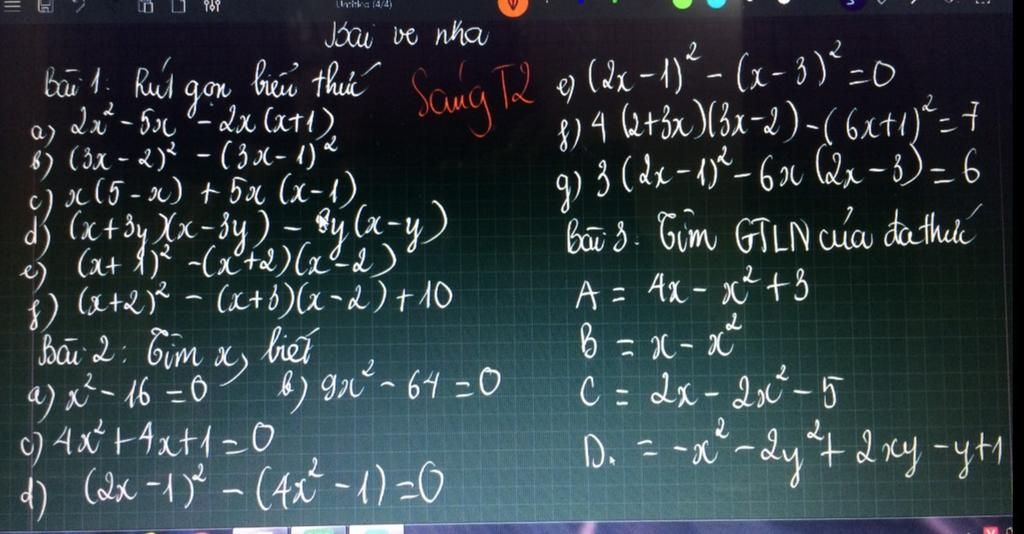 Untitled (4/4)
Bài về nhà
Bài 1: Rút gọn biểu thức
Sáng T2
a) 2x² - 5x - 2x(x+1)
b) (3x - 2)² - (3x - 1)²
c) x(5 - x) + 5x (x - 1)
d) (x + 3y)(x - 3y) - y(x - y)
e) (x + 1)² - (x + 2)(x - 2)
f) (x+2)² - (x+3)(x - 2) + 10
Bài 2: Tìm x, biết
a) x² - 16 = 0 b) 9x² - 64 = 0
c) 4x² + 4x + 1 = 0
d) (2x - 1)² - (4x² - 1) = 0
e) (2x - 1)² - (x - 3)² = 0
f) 4 (2+3x)(3x - 2) - (6x+1)² = 7
g) 3 (2x - 1)² - 6x (2x - 3) = 6
Bài 3. Tìm GTLN của đa thức
A = 4x - x² + 3
B = x - x²
C = 2x - 2x² - 5
D. = -x² - 2y² + 2xy - y + 1